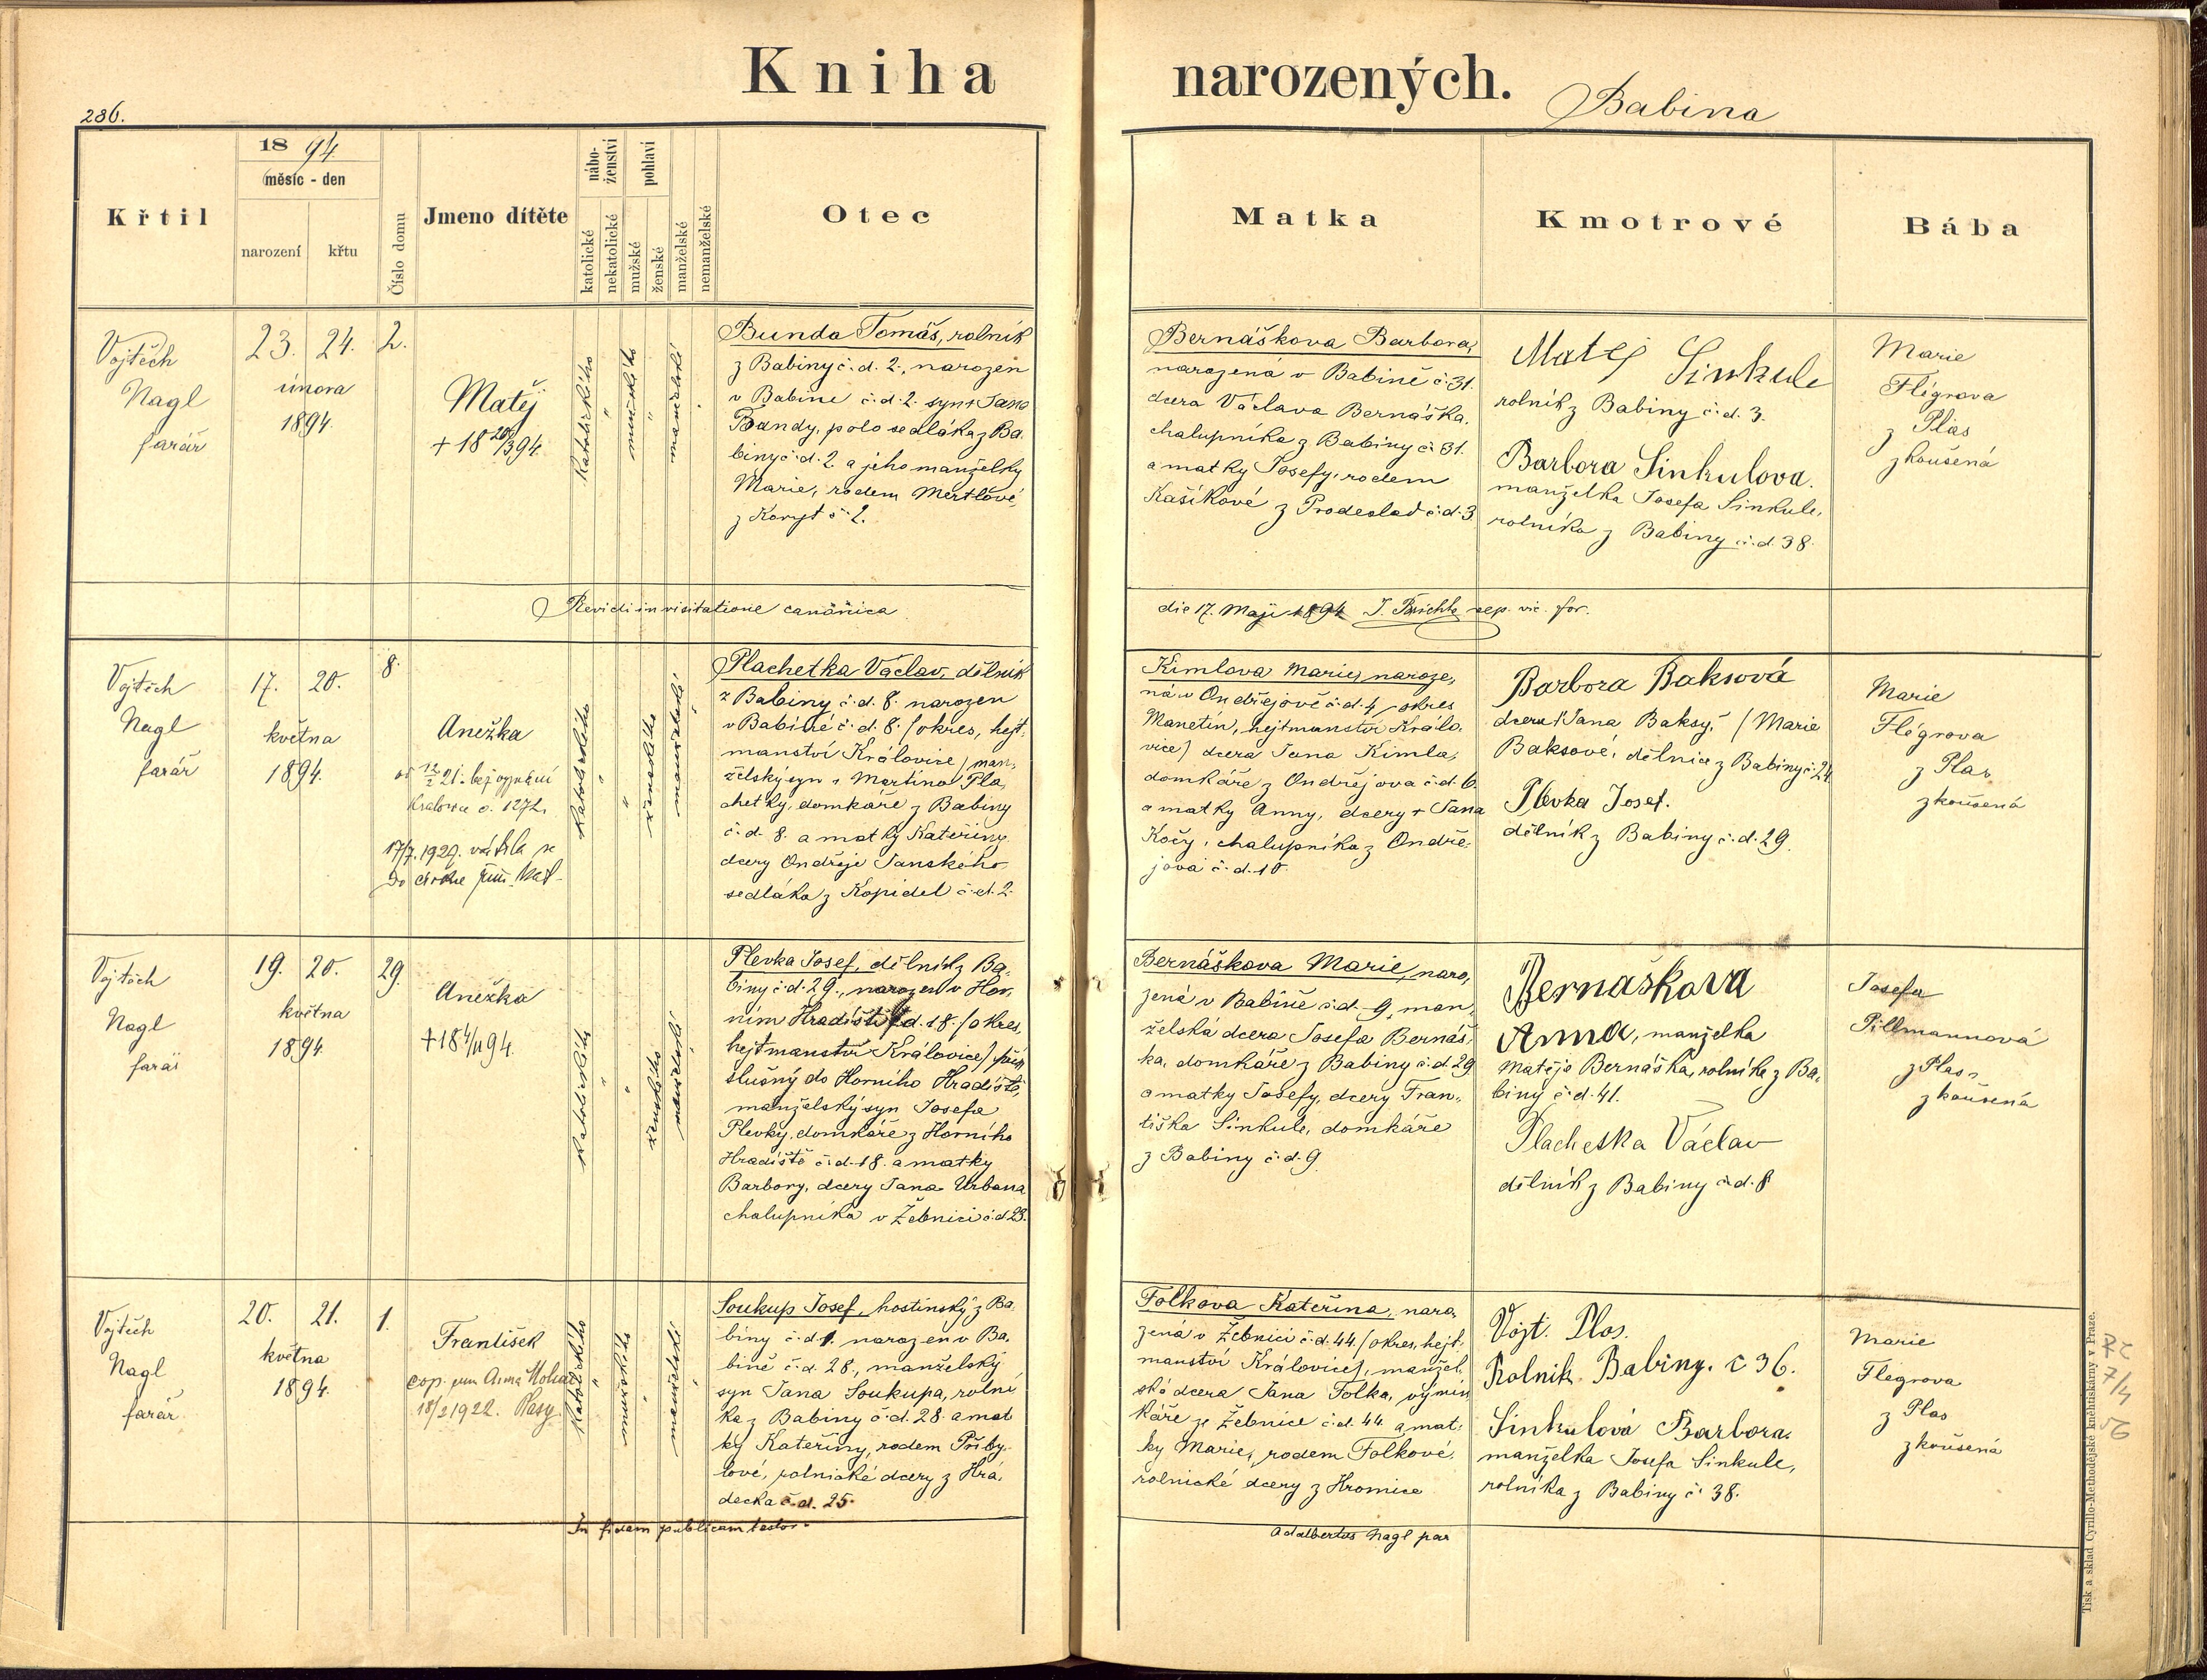 Kniha narozených.
Babina
236.
Křtil
18 94.
měsíc - den
narození
křtu
Číslo domu
Jmeno dítěte
nábo-
ženství
katolické
nekatolické
pohlaví
mužské
ženské
manželské
nemanželské
Otec
Matka
Kmotrové
Bába
Vojtěch
Nagl
farář
23. 24.
února
1894.
2.
Matěj
+ 18 20/3 94.
Katolického
mužského
manželské
Bunda Tomáš, rolník
z Babiny č. d. 2., narozen
v Babině č. d. 2. syn + Jana
Bundy, polosedláka z Ba-
biny č. d. 2. a jeho manželky
Marie, rodem Mertlové,
z Koryt č. 2.
Bernáškova Barbora,
narozená v Babině č. 31.
dcera Václava Bernáška,
chalupníka z Babiny č. 31.
a matky Josefy, rodem
Kašíkové z Prodeslad č. d. 3
Matěj Sinkule
rolník z Babiny č. d. 3.
Barbora Sinkulova.
manželka Josefa Sinkule,
rolníka z Babiny č. d. 38.
Marie
Flégrova
z Plas
zkoušená
Revidi in visitatione canonica
die 17. Maji 1894 vic. for.
Vojtěch
Nagl
farář
17. 20.
května
1894.
8.
Anežka
17/7. 1929. vrátila se
do církve
Katolického
ženského
manželské
Plachetka Václav, dělník
z Babiny č. d. 8. narozen
v Babině č. d. 8. (okres, hejt-
manství Královice) man-
želský syn + Martina Pla-
chetky, domkáře z Babiny
č. d. 8. a matky Kateřiny
dcery Ondřeje Janského
sedláka z Kopidel č. d. 2.
Kimlova Marie, naroze-
ná v Ondřejově č. d. 4, okres
Manetín, hejtmanství Králo-
vice) dcera Jana Kimla,
domkáře z Ondřejova č. d. 6.
a matky Anny, dcery + Jana
Kočy, chalupníka z Ondře-
jova č. d. 10
Barbora Baksová
dcera Jana Baksy, / Marie
Baksové, dělnice z Babiny č. 24
Plevka Josef.
dělník z Babiny č. d. 29.
Marie
Flégrova
z Plas
zkoušená
Vojtěch
Nagl
farář
19. 20.
května
1894.
29.
Anežka
+ 18 4/11 94.
Katolického
ženského
manželské
Plevka Josef, dělník z Ba-
biny č. d. 29., narozen v Hor-
ním Hradišti č. d. 18. (okres,
hejtmanství Královice) pří-
slušný do Horního Hradiště,
manželský syn Josefa
Plevky, domkáře z Horního
Hradiště č. d. 18. a matky
Barbory, dcery Jana Urbana
chalupníka v Žebnici č. d. 23.
Bernáškova Marie, naro-
zená v Babině č. d. 9, man-
želská dcera Josefa Bernáš-
ka, domkáře z Babiny č. d. 29
a matky Josefy, dcery Fran-
tiška Sinkule, domkáře
z Babiny č. d. 9.
Bernaškova
Anna, manželka
Matěje Bernáška, rolníka z Ba-
biny č. d. 41.
Plachetka Václav
dělník z Babiny č. d. 8
Josefa
Pillmannová
z Plas,
zkoušená
Vojtěch
Nagl
farář
20. 21.
května
1894.
1.
František
18/2 1922. Plasy
Katolického
mužského
manželské
Soukup Josef, hostinský z Ba-
biny č. d. 1. narozen v Ba-
bině č. d. 28., manželský
syn Jana Soukupa, rolní-
ka z Babiny č. d. 28. a mat-
ky Kateřiny, rodem Přiby-
lové, rolnické dcery z Hrá-
decka č. d. 25.
Folkova Kateřina, naro-
zená v Žebnici č. d. 44. (okres, hejt-
manství Královice), manžel-
ská dcera Jana Folka, výmin-
káře ze Žebnice č. d. 44 a mat-
ky Marie, rodem Folkové,
rolnické dcery z Hromice
Vojt. Plos.
Rolnik. Babiny. č 36.
Sinkulová Barbora.
manželka Josefa Sinkule,
rolníka z Babiny č. 38.
Marie
Flégrova
z Plas
zkoušená
In fidem publicam testor
Adalbertus Nagl par
Tisk a sklad Cyrillo-Methodějské knihtiskárny v Praze.